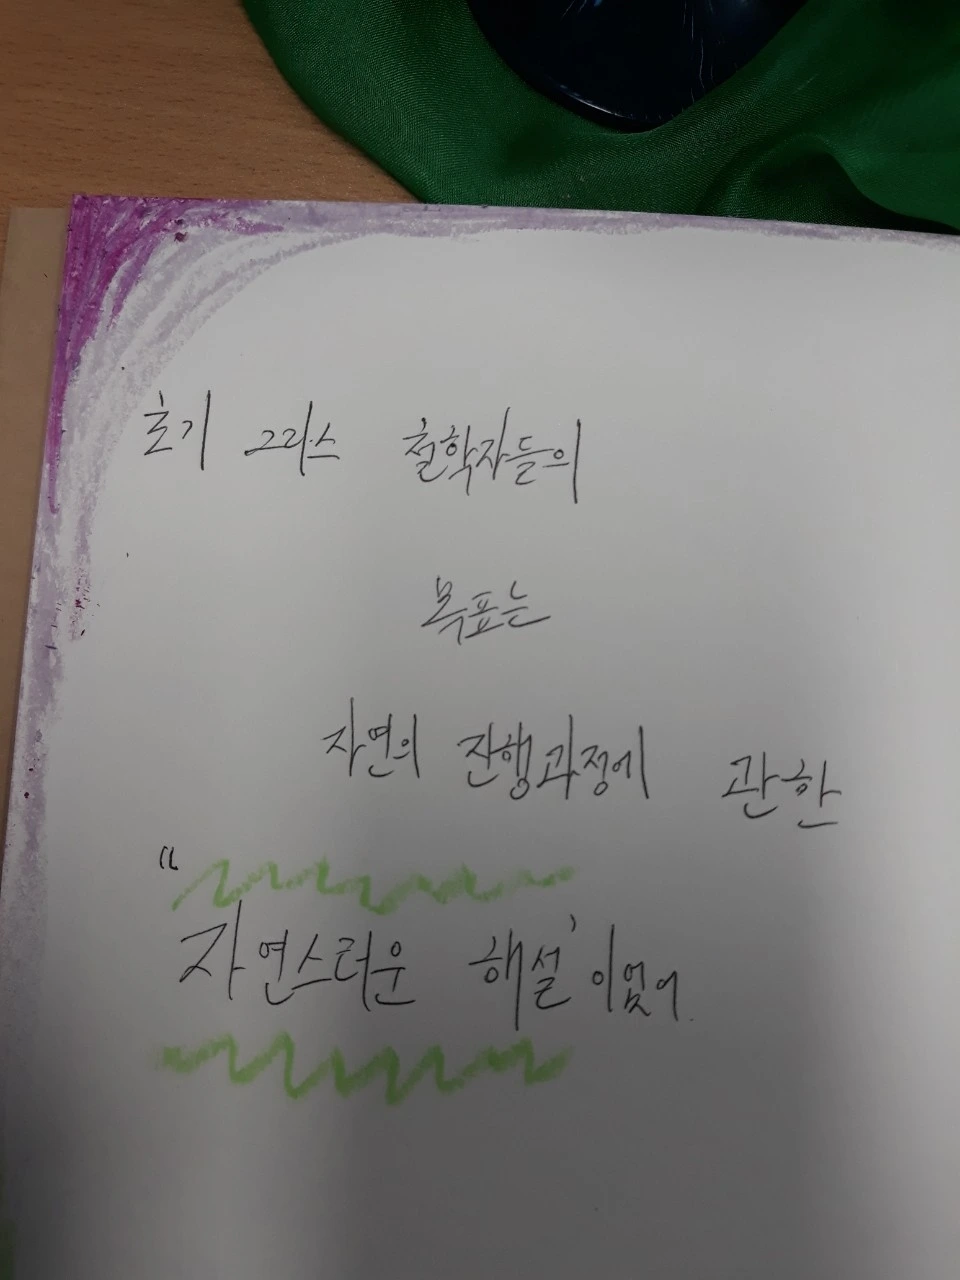 초기 그리스 철학자들의
목표는
자연의 진행과정에 관한
“자연스러운 해설’이었어.